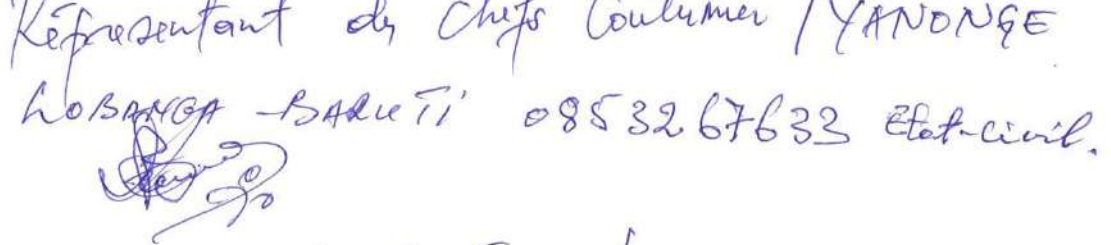 Représentant des Chefs Coutumier / YANONGE
LOBANGA BARUTI 0853267633 Etat-civil.